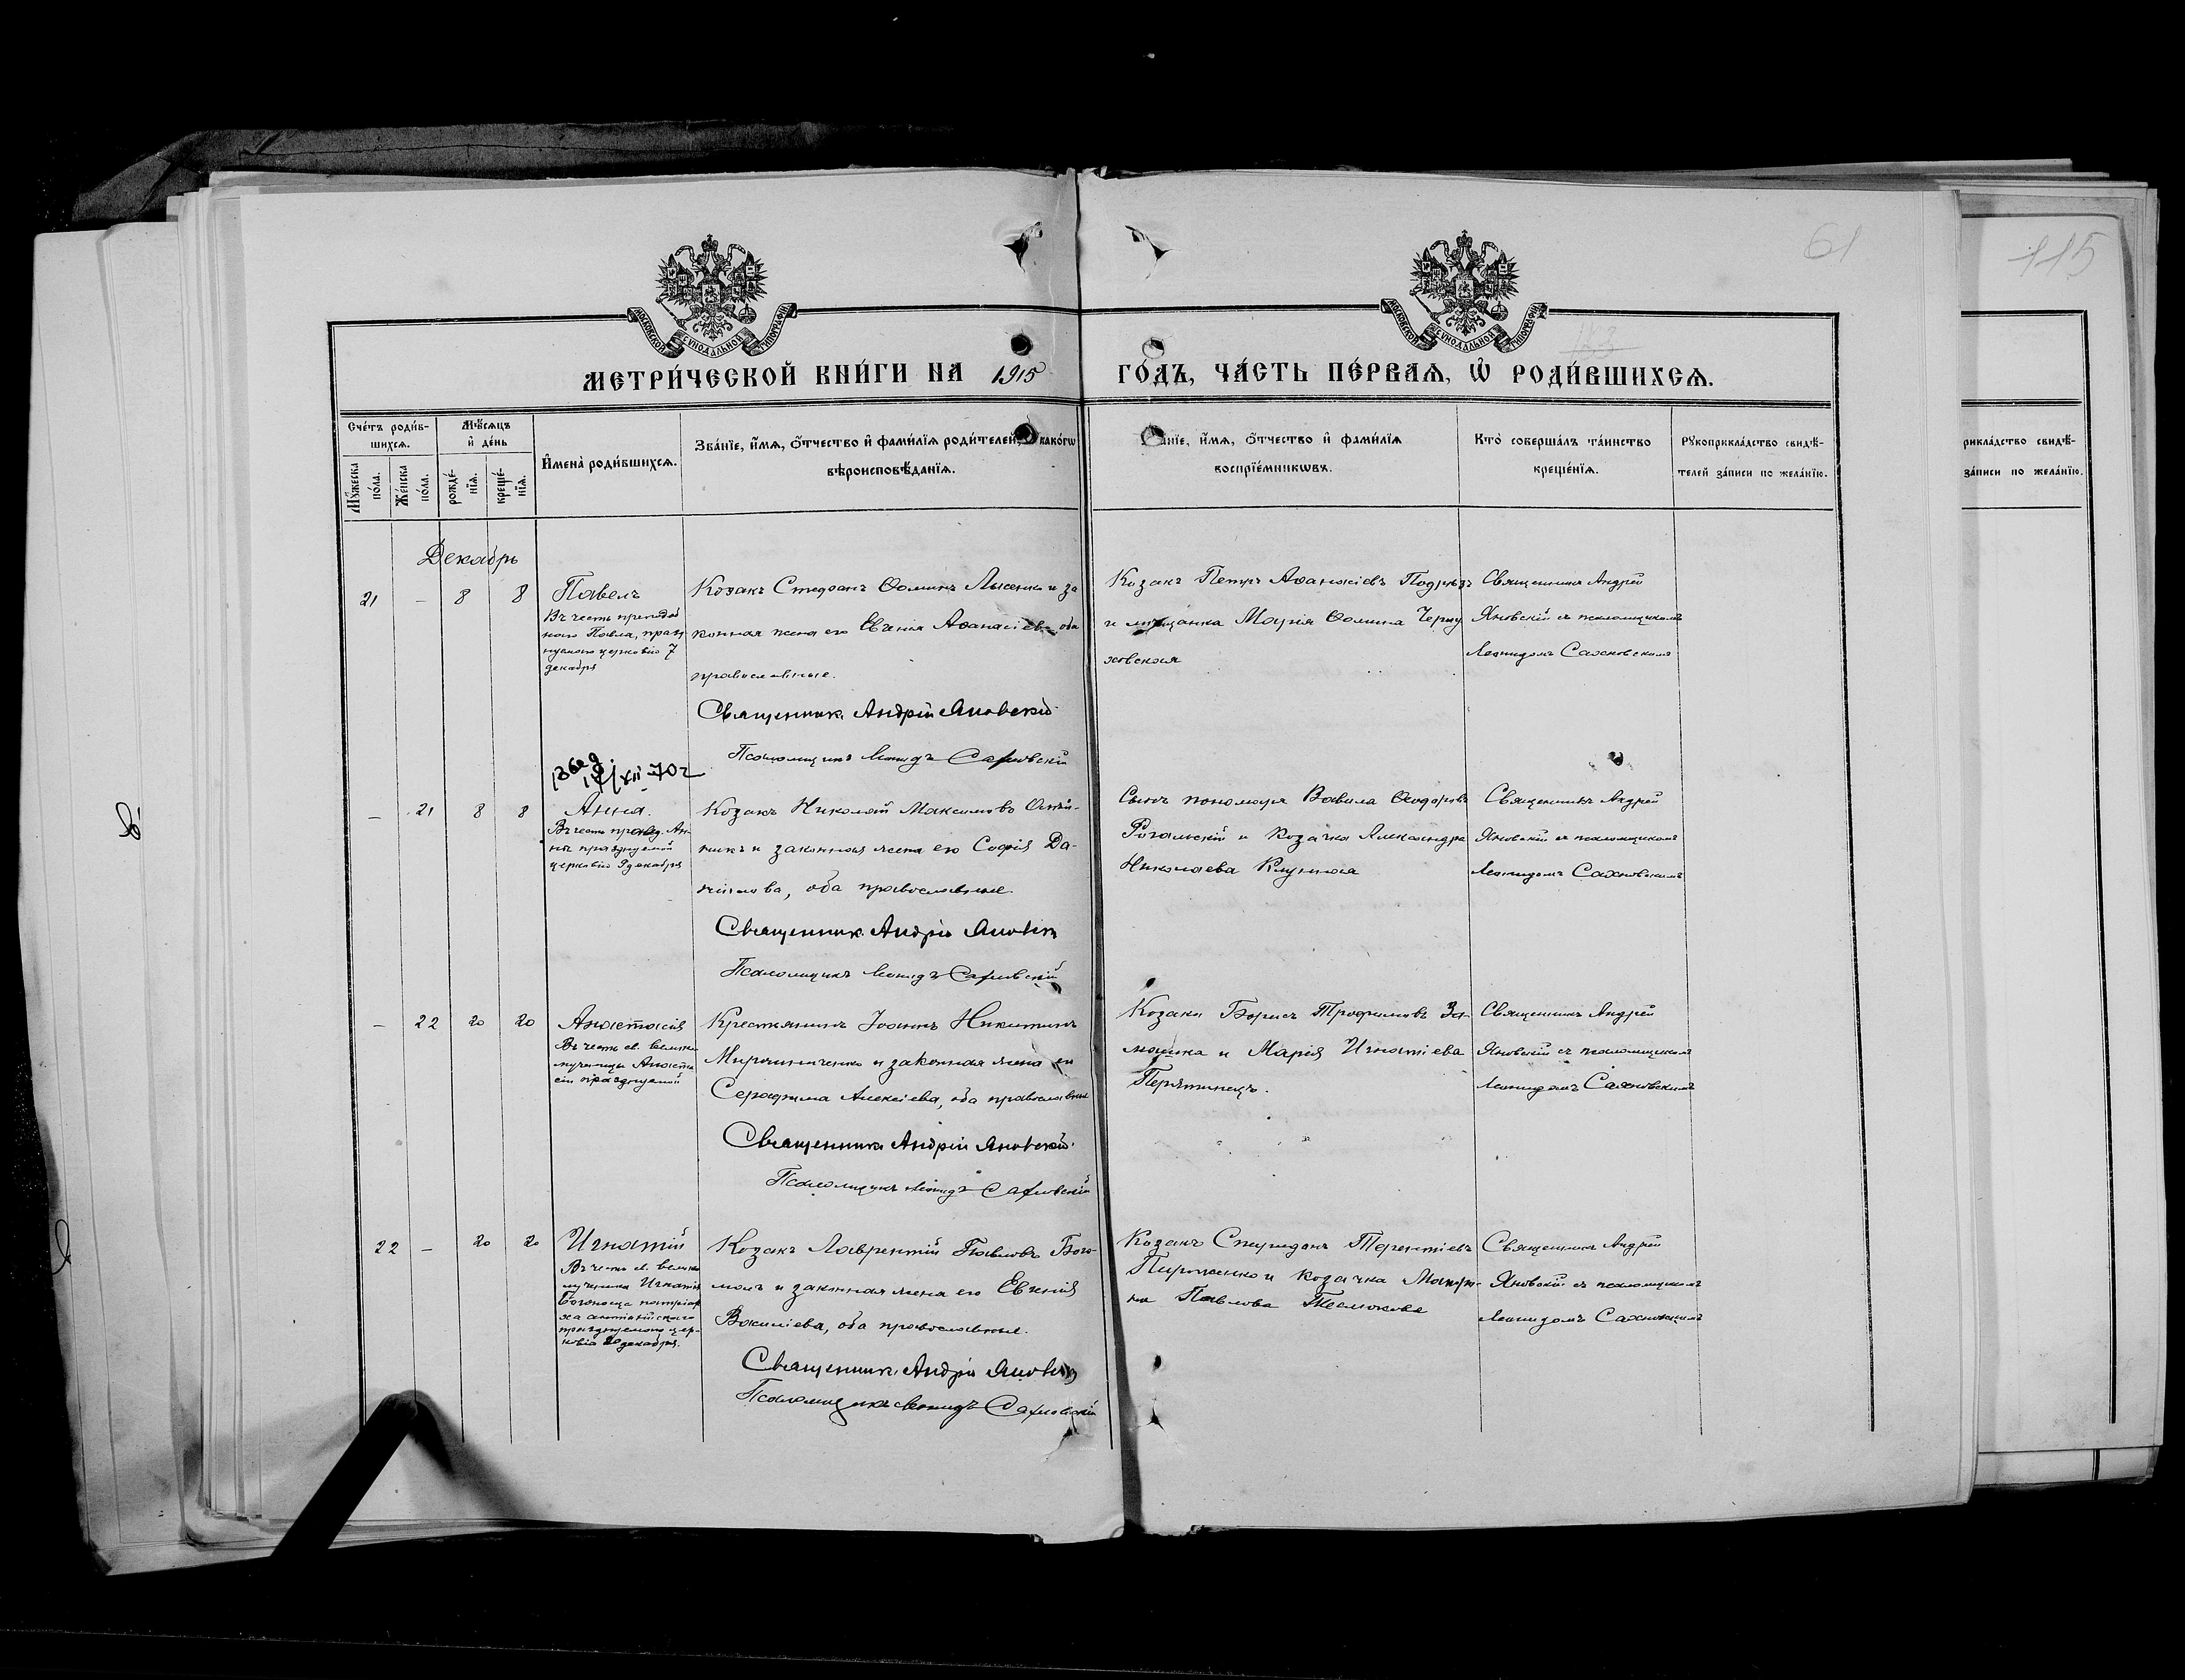 61
115
МОСКОВСКОЙ СѴНОДАЛЬНОЙ ТИПОГРАФІИ
МОСКОВСКОЙ СѴНОДАЛЬНОЙ ТИПОГРАФІИ
МЕТРИ́ЧЕСКОЙ КНИ́ГИ НА 1915 ГО́ДЪ, ЧА́СТЬ ПЕ́РВАѦ, Ѡ҆ РОДИ́ВШИХСѦ.
Сче́тъ роди́в-
шихсѧ.
Мꙋ́жеска по́ла.
Же́нска по́ла.
Мѣ́сѧцъ и҆ де́нь
рожде́-
нїѧ.
креще́-
нїѧ.
И҆мена̀ роди́вшихсѧ.
Зва́нїе, и҆́мѧ, ѻ҆́тчество и҆ фами́лїѧ роди́телей, како́гѡ
вѣроисповѣ́данїѧ.
и҆́мѧ, ѻ҆́тчество и҆ фами́лїѧ
воспрїе́мникѡвъ.
Кто̀ соверша́лъ та́инство
креще́нїѧ.
Рꙋкоприкла́дство свидѣ́-
телей за́писи по жела́нїю.
рикла́дство свидѣ́-
за́писи по жела́нїю.
Декабрь
21 – 8 8
Павелъ
Въ честь преподоб
наго Павла, празд
нуемаго церковію 7
декабря
Козакъ Стефанъ Ѳоминъ Лысенко и за
конная жена его Евгенія Аѳанасіева, оба
православные.
Священникъ Андрій Яновскій
Псаломщикъ Леонидъ Сахновскій
Козакъ Петръ Аѳанасіевъ
и мѣщанка Марія Ѳомина Черня
ховская
Священникъ Андрей
Яновскій съ псаломщикомъ
Леонидомъ Сахновскимъ
XII-70г
– 21 8 8
Анна.
Въ честь прав. Ан-
ны празднуемой
церковію 9 декабря
Козакъ Николай Максимовъ
и законная жена его Софія Да-
нилова, оба православные.
Священникъ Андрій Яновскій
Псаломщикъ Леонидъ Сахновскій
Сынъ пономаря Вавила Ѳеодоровъ
Рогальскій и козачка Александра
Николаева
Священникъ Андрей
Яновскій съ псаломщикомъ
Леонидомъ Сахновскимъ
– 22 20 20
Анастасія
Въ честь св. велико
мученицы Анаста
сіи празднуемой
Крестьянинъ Іоаннъ Никитинъ
Мирошниченко и законная жена его
Серафима Алексіева, оба православные
Священникъ Андрій Яновскій
Псаломщикъ Леонидъ Сахновскій
Козаки Борисъ Трофимовъ
и Марія Игнатіева
Пирятинецъ.
Священникъ Андрей
Яновскій съ псаломщикомъ
Леонидомъ Сахновскимъ
22 – 20 20
Игнатій
Въ честь св. велико
мученика Игнатія
Богоносца патріар
ха антіохійскаго
празднуемаго цер-
ковію 20 декабря.
Козакъ Лаврентій Павловъ Бого-
молъ и законная жена его Евгенія
Василіева, оба православные.
Священникъ Андрій Яновскій
Псаломщикъ Леонидъ Сахновскій
Козакъ Спиридонъ Терентіевъ
Пироженко и козачка
Павлова
Священникъ Андрей
Яновскій съ псаломщикомъ
Леонидомъ Сахновскимъ